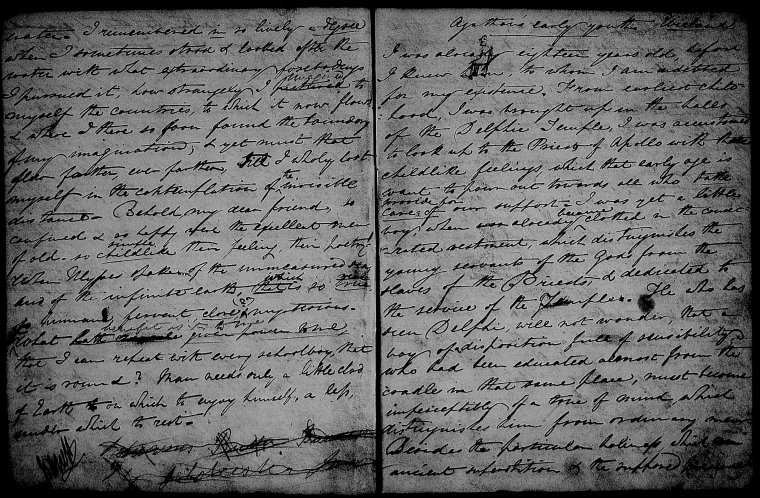 water. I remembered in so lively a degree
when I sometimes stood & looked after the
water with what extraordinary forebodings
I pursued it, how strangely I pictured to
myself the countries to which it now flow
& how I there so soon found the boundary
of my imagination; & yet must that
flow farther, ever farther, till I wholly lost
myself in the contemplation of the invisible
distance. Behold my dear friend, so
confined & so happy were the excellent men
of old. so childlike their feeling, their poetry!
When Ulysses spoke of the unmeasured sea
and of the infinite earth, that is so true
so human, fervent, close & mysterious.
What given power to me
that I can repeat with every schoolboy, that
it is round? Man needs only a little clod
of Earth on which to enjoy himself, a less,
under which to rest.
Agathons early youth
I was already eighteen years old, before
I knew to whom I am indebted
for my existence. From earliest child
hood, I was brought up in the halls
of the Delphic Temple, I was accustomed
to look up to the Priests of Apollo with
childlike feelings, which that early age is
want to pour out towards all who take
care of our support. I was yet a little
boy, when was already clothed in the conse
-crated vestment, which distinguishes the
young servants of the Gods from the
slaves of the Priests, & dedicated to
the service of the Temples. He who has
seen Delphi, will not wonder, that a
boy of disposition full of sensibility
who had been educated almost from the
cradle in that same place, must become
imperceptibly of a tone of mind, which
distinguishes him from ordinary men.
Besides the particular holiness which an
ancient superstition & the supposed